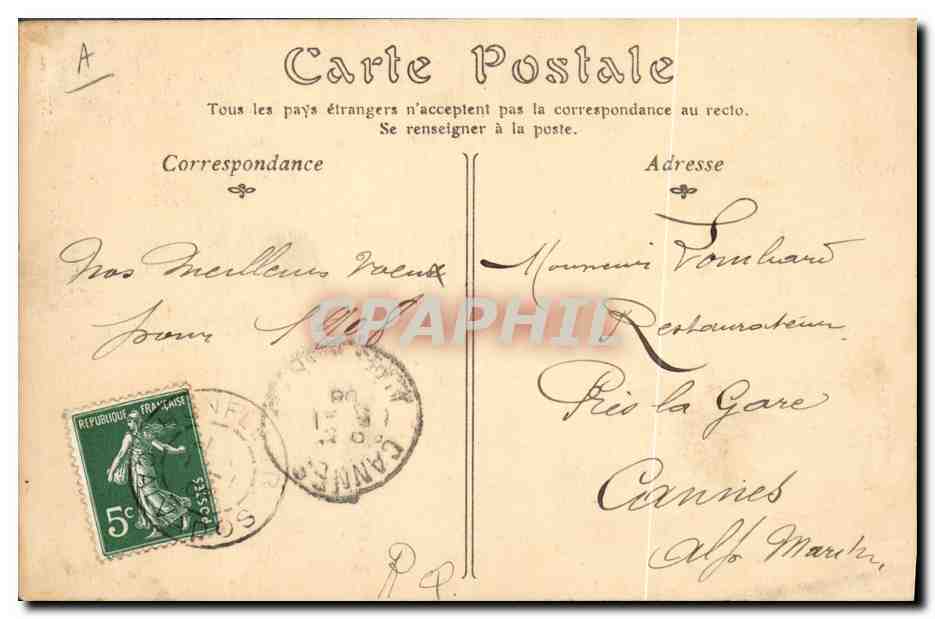 A
Carte Postale
Tous les pays étrangers n'acceptent pas la correspondance au recto.
Se renseigner à la poste.
Correspondance
Adresse
Nos meilleurs voeux
pour
Monsieur Lombard
Restaurateur
Près la Gare
Cannes
Alp Marit
CPAPHIL
REPUBLIQUE FRANÇAISE
POSTES
5c
CANNES